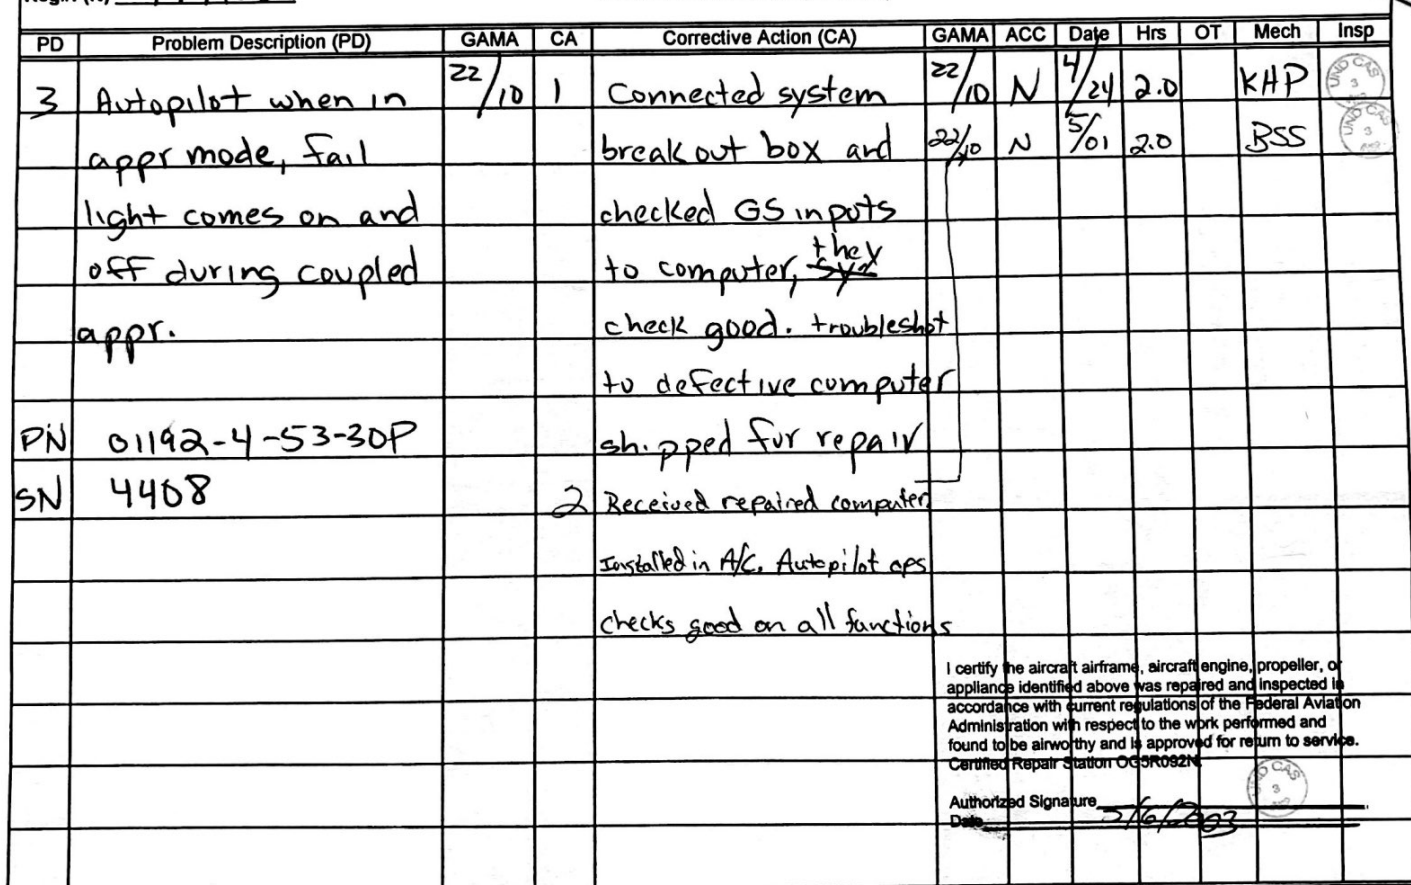 PD Problem Description (PD) GAMA CA Corrective Action (CA) GAMA ACC Date Hrs OT Mech Insp
3 Autopilot when in 22/10 1 Connected system 22/10 N 4/24 2.0 KHP
appr mode, fail break out box and 22/10 N 5/01 2.0 BSS
light comes on and checked GS inputs
off during coupled to computer, they
appr. check good. troubleshot
to defective computer
PN 01192-4-53-30P shipped for repair
SN 4408 2 Received repaired computer
Installed in A/C. Autopilot ops
checks good on all functions
I certify the aircraft airframe, aircraft engine, propeller, or
appliance identified above was repaired and inspected in
accordance with current regulations of the Federal Aviation
Administration with respect to the work performed and
found to be airworthy and is approved for return to service.
Certified Repair Station OG5R092N
Authorized Signature
Date 5/6/2003